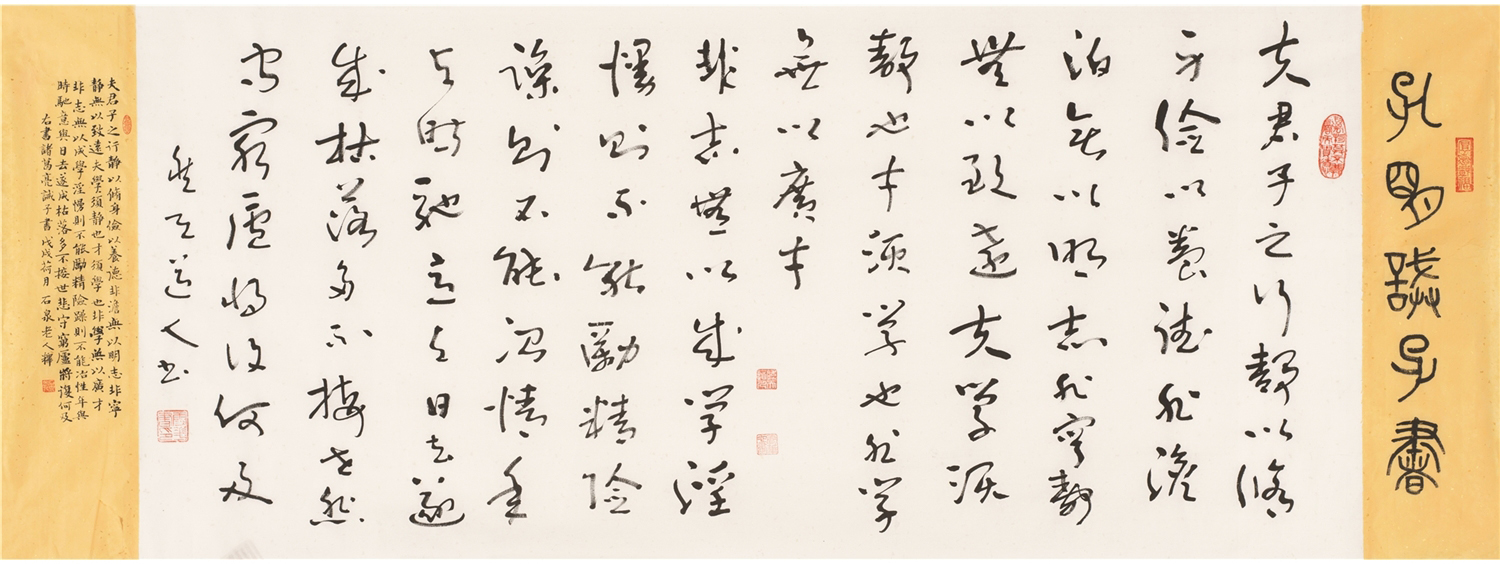 孔明誡子書
夫君子之行靜以脩
身儉以養德非澹
泊無以明志非寧靜
無以致遠夫學須
靜也才須學也非學
無以廣才
非志無以成學淫
慢則不能勵精險
躁則不能冶情年
與時馳意與日去遂
成枯落多不接世
守窮廬將復何及
道人書
夫君子之行靜以脩身儉以養德非澹無以明志非寧
靜無以致遠夫學須静也才須學也非學無以廣才
非志無以成學淫慢則不能勵精險躁則不能冶性年與
時馳意與日去遂成枯落多不接世悲守窮廬將復何及
右書諸葛亮誡子書戊戌荷月石泉老人釋